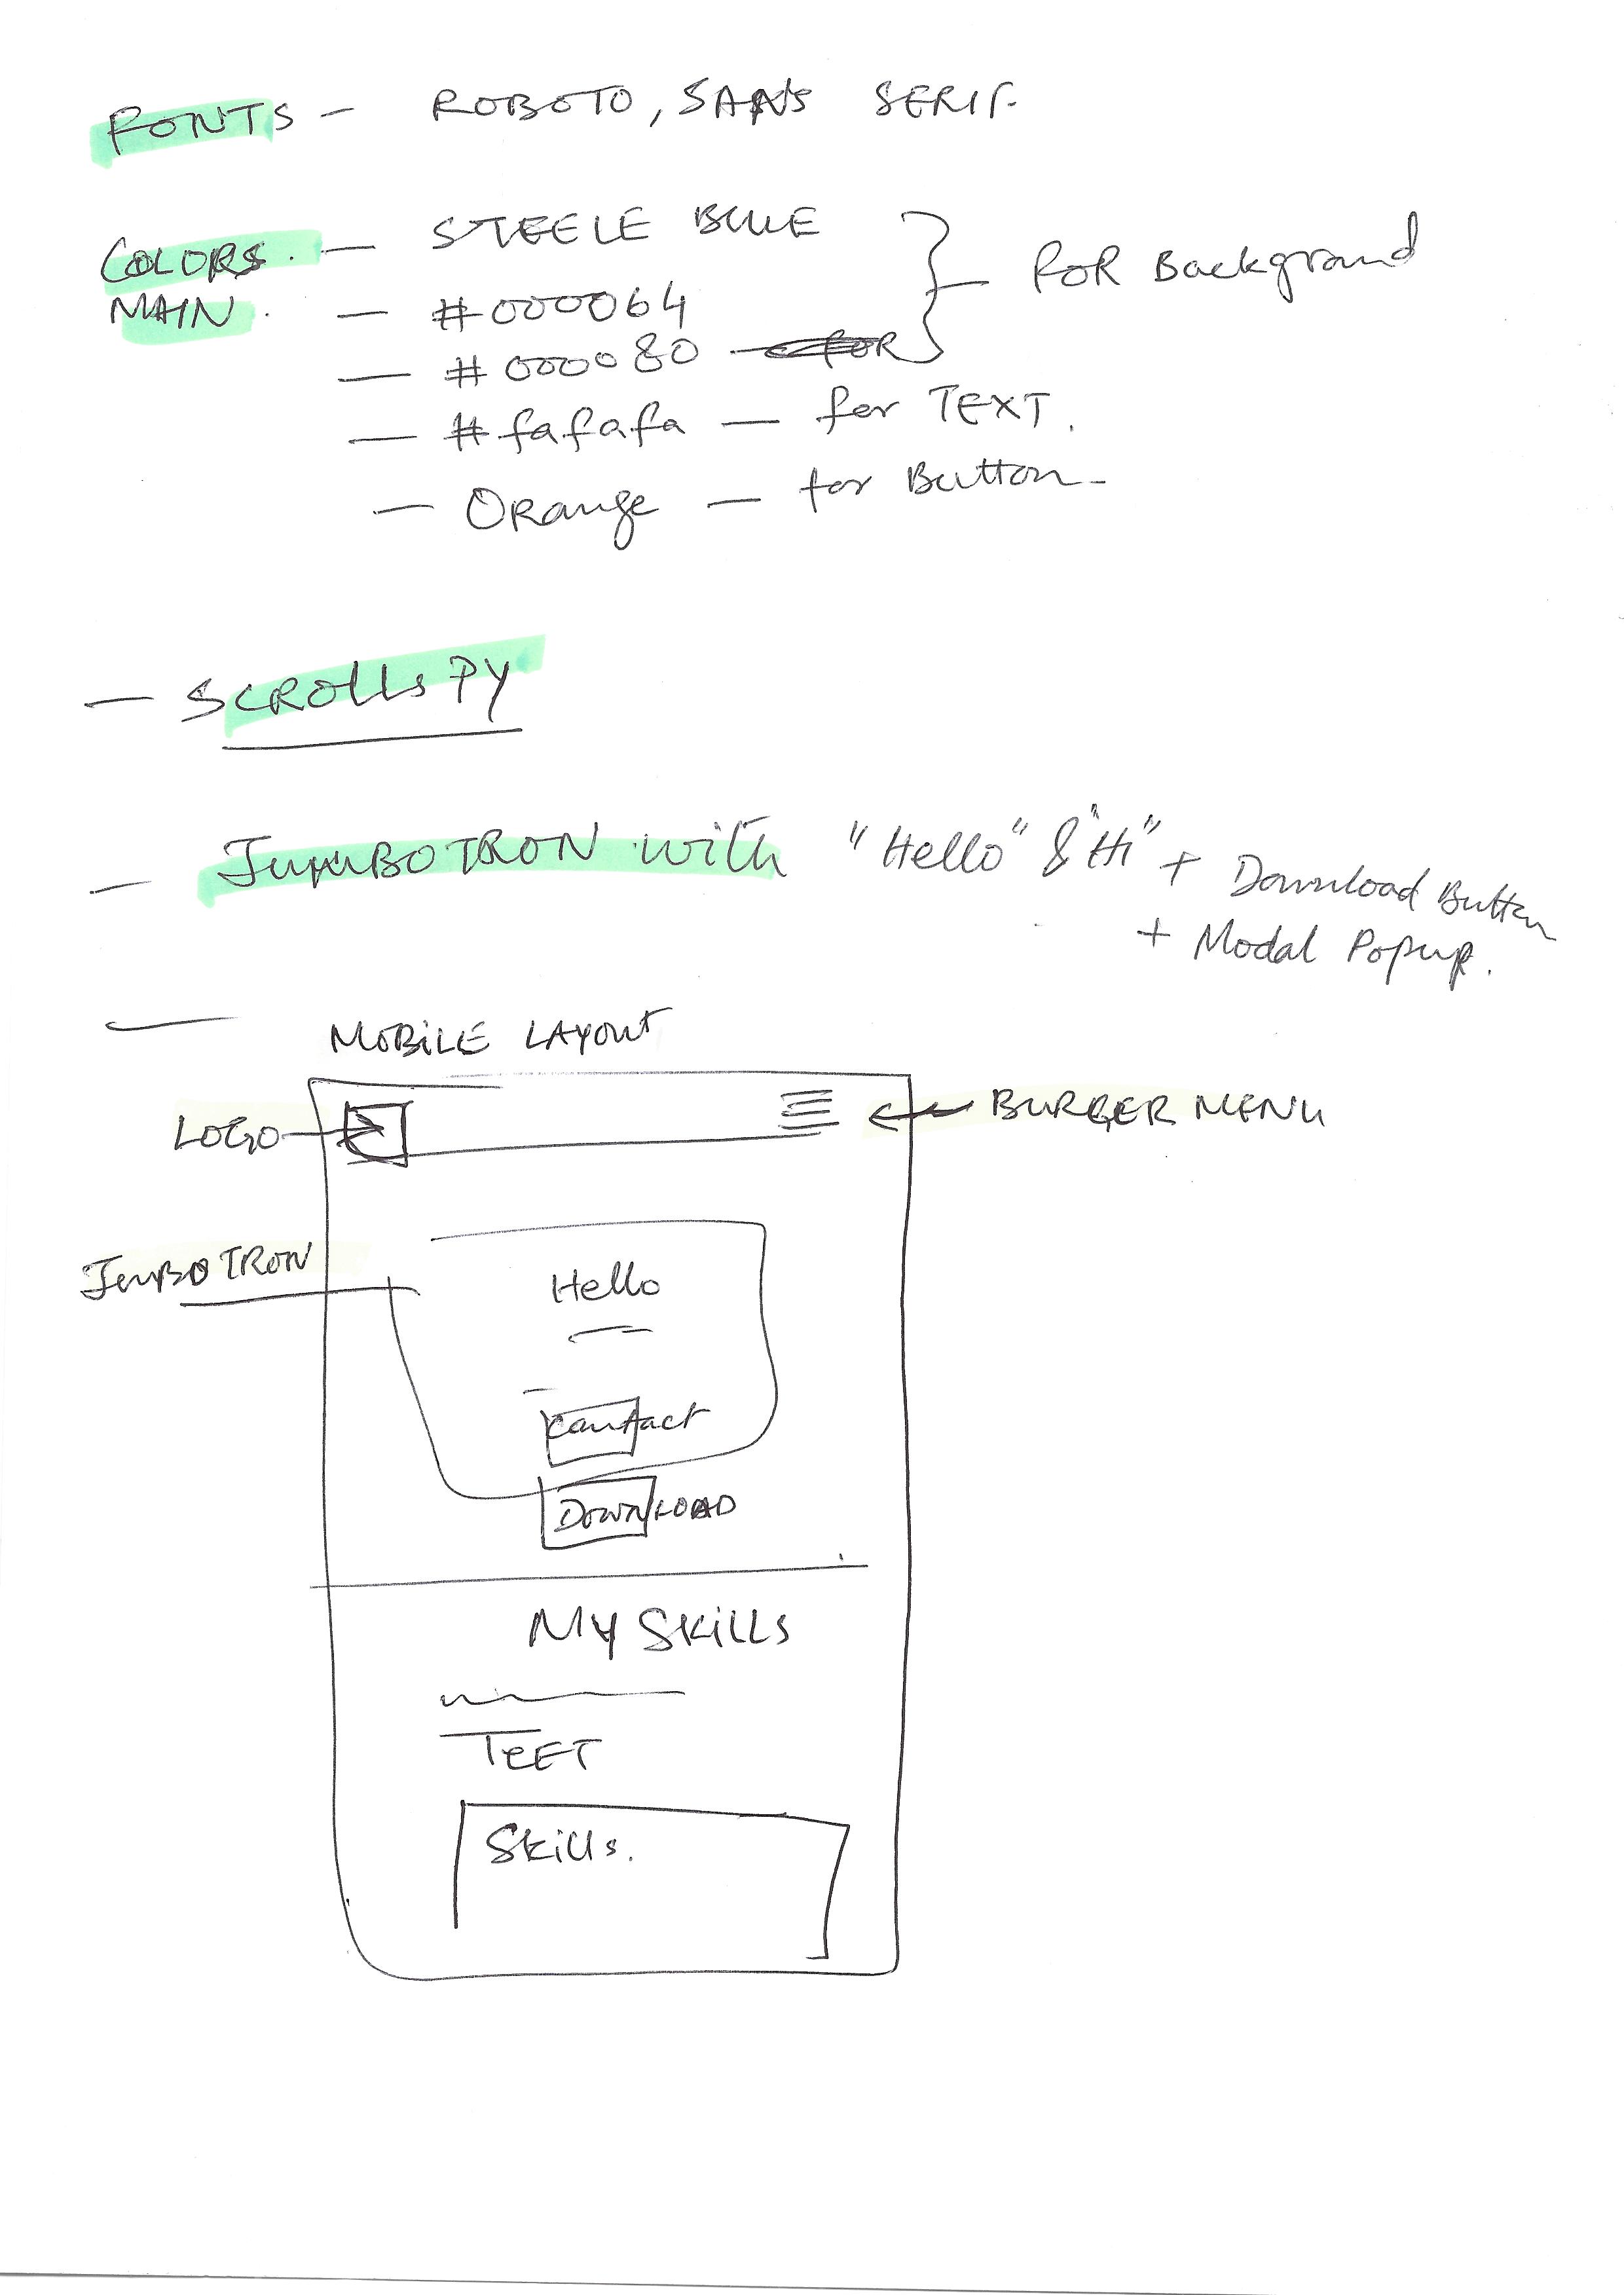 FONTS — ROBOTO, SANS SERIF
COLORS. — STEELE BLUE
MAIN. — #000064
— #000080 — FOR
FOR Background
— #fafafa — for TEXT.
— ORange — for Button-
— SCROLLSPY
— JUMBOTRON with "Hello" & "Hi" + Download Button
+ Modal Popup.
— MOBILE LAYOUT
LOGO
BURGER MENU
JUMBOTRON
Hello
Contact
DOWNLOAD
MY SKILLS
Skills.